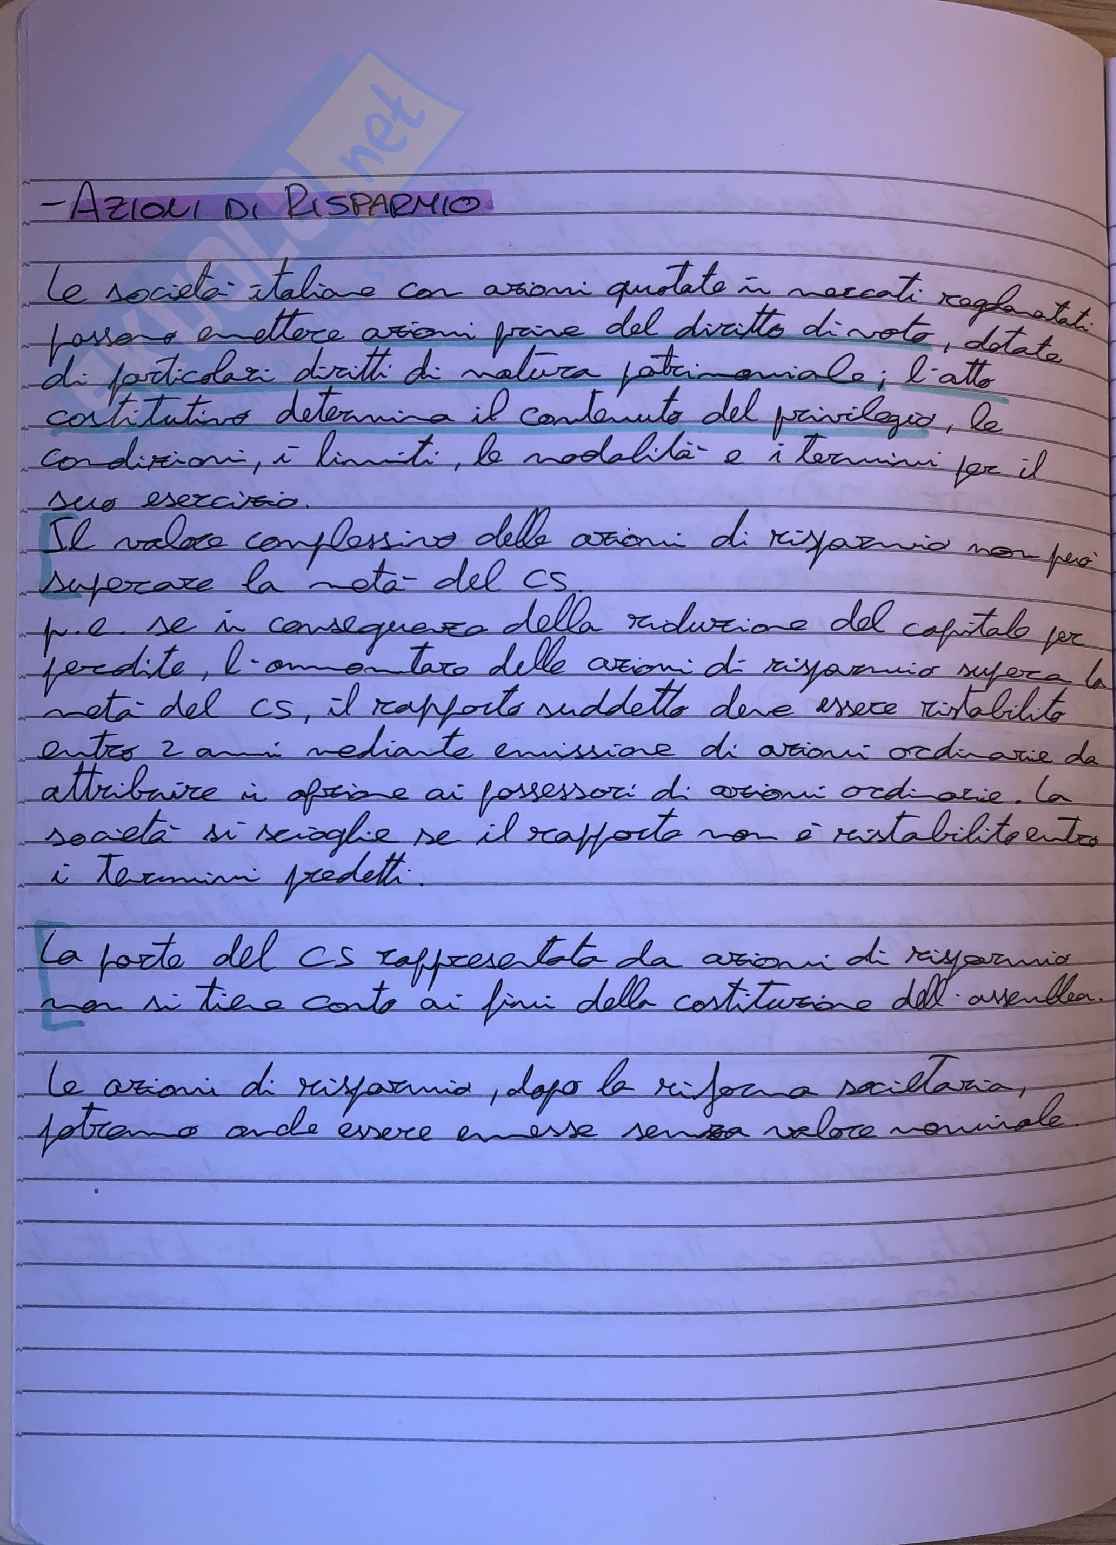 - AZIONI DI RISPARMIO
Le società italiane con azioni quotate in mercati reglamatati
possono emettere azioni prive del diritto di voto, dotate
di particolari diritti di natura patrimoniale; l'atto
costitutivo determina il contenuto del privilegio, le
condizioni, i limiti, le modalità e i termini per il
suo esercizio.
Il valore complessivo delle azioni di risparmio non può
superare la metà del CS.
p.e. se in conseguenza della riduzione del capitale per
perdite, l'ammontare delle azioni di risparmio supera la
metà del CS, il rapporto suddetto deve essere ristabilito
entro 2 anni mediante emissione di azioni ordinarie da
attribuire in opzione ai possessori di azioni ordinarie. La
società si scioglie se il rapporto non è ristabilito entro
i termini predetti.
La parte del CS rappresentata da azioni di risparmio
non si tiene conto ai fini della costituzione dell'assemblea.
Le azioni di risparmio, dopo la riforma societaria,
potranno anche essere emesse senza valore nominale.
.net